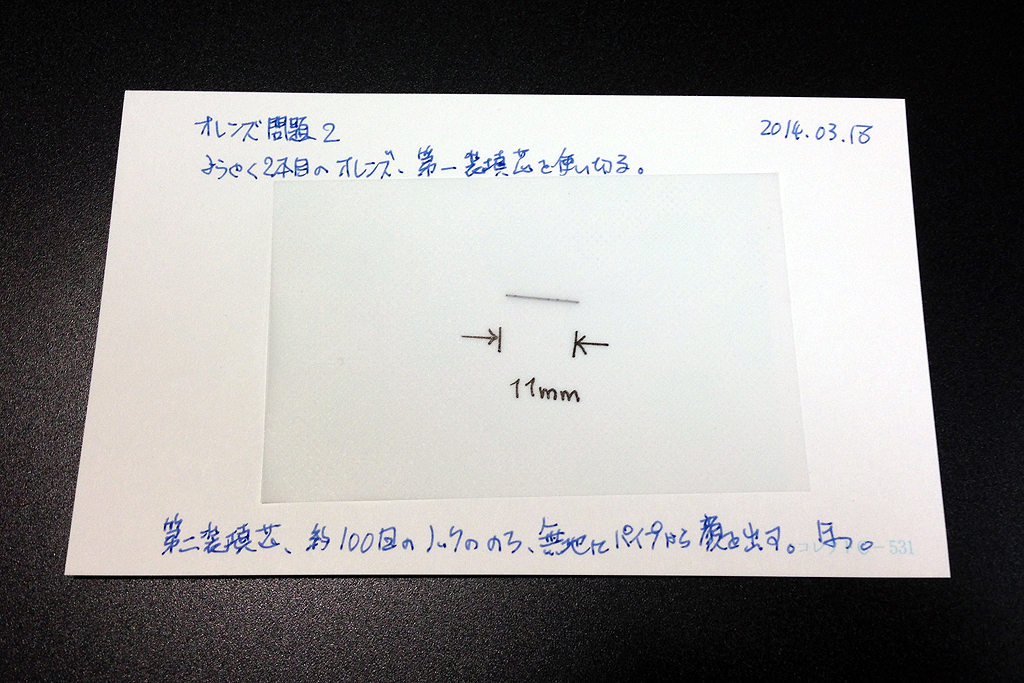 オレンズ問題2
2014.03.18
ようやく2本目のオレンズ、第一装填芯を使い切る。
11mm
第二装填芯、約100回のノックののち、無地にパイプから顔を出す。ほっ。
コレクト C-531